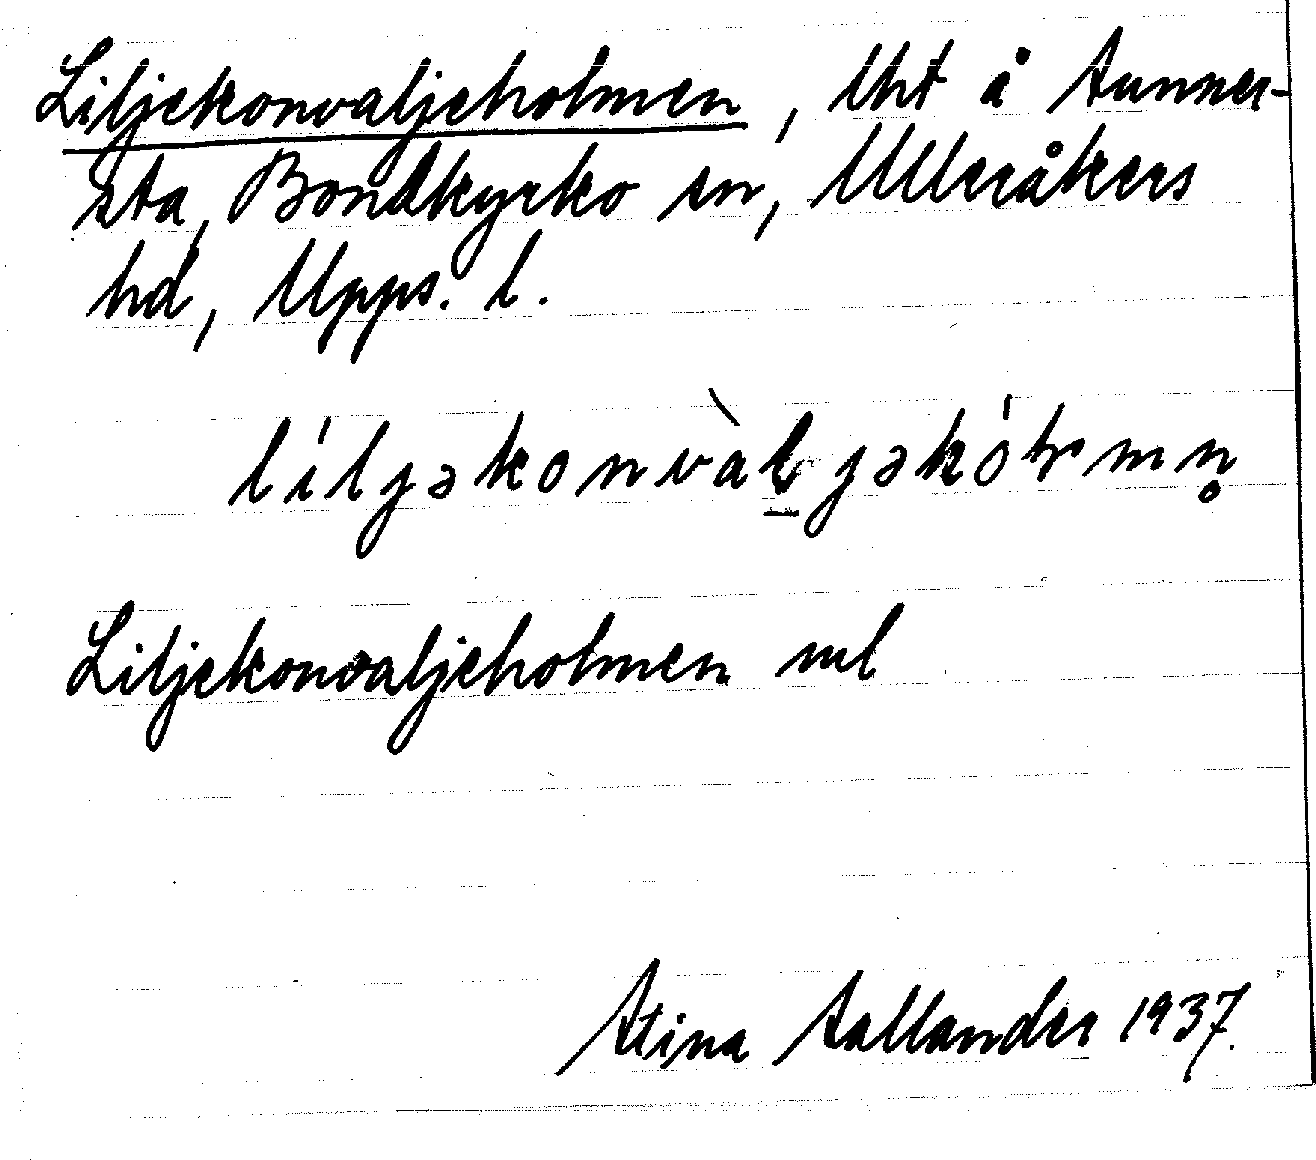 Liljekonvaljeholmen, lht å Sunner-
sta, Bondkyrko sn, Ulleråkers
hd, Upps. l.
Liljekonvaljeholmen ml
Stina Sallander 1937.